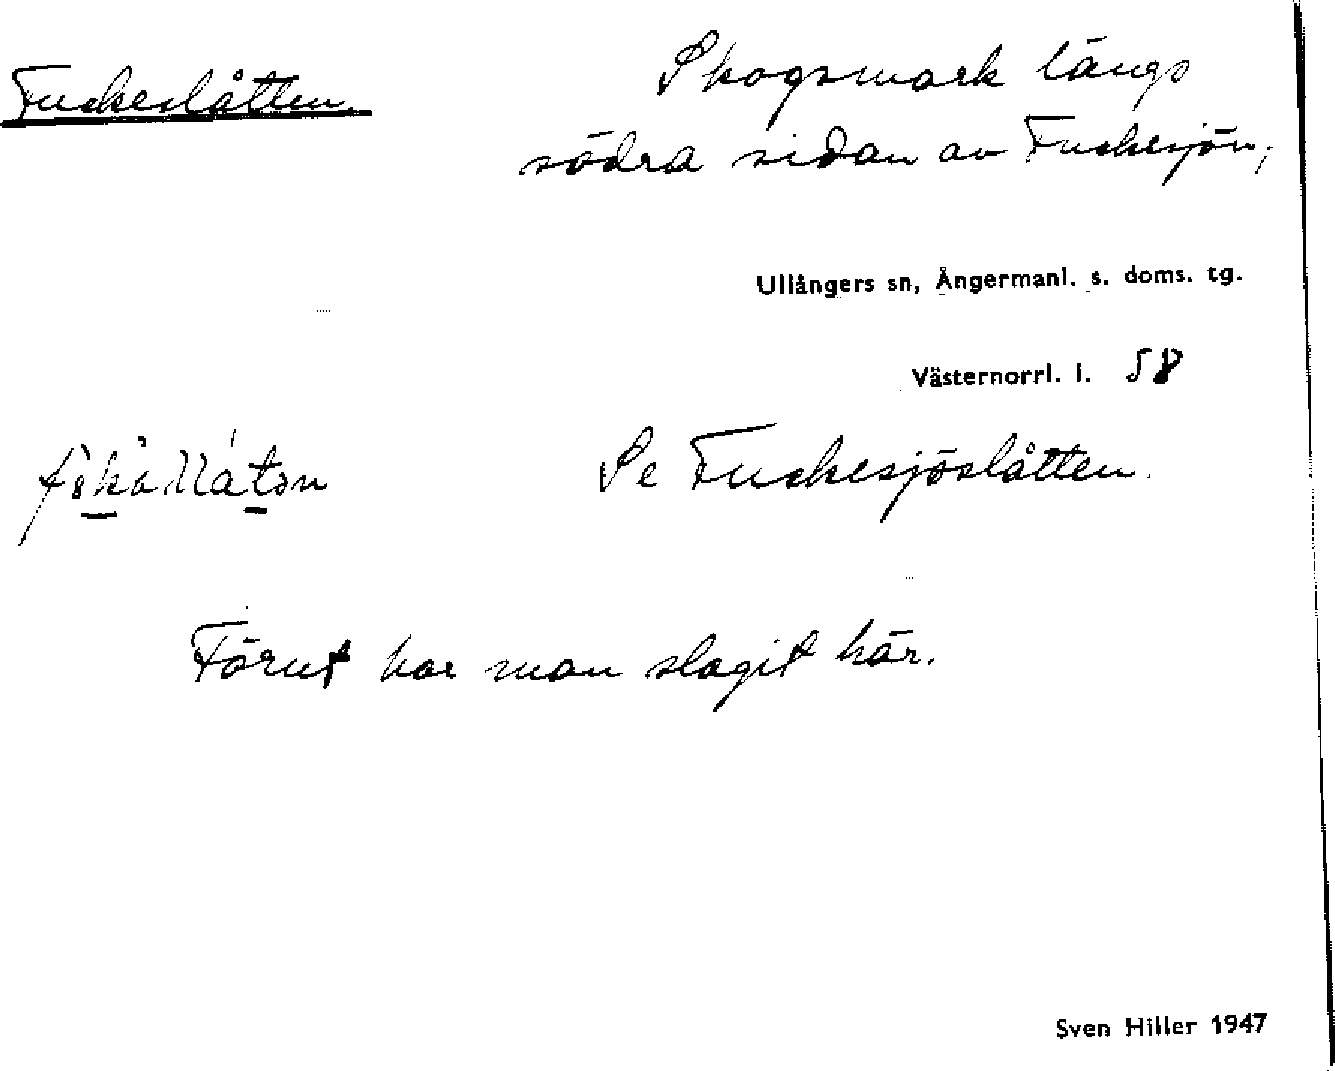 Fuskeslåtten
Skogsmark längs
södra sidan av Fuskesjön,
Ullångers sn, Ångermanl. s. doms. tg.
Västernorrl. l. 58
Se Fuskesjöslåtten.
Förut har man slagit här.
Sven Hiller 1947